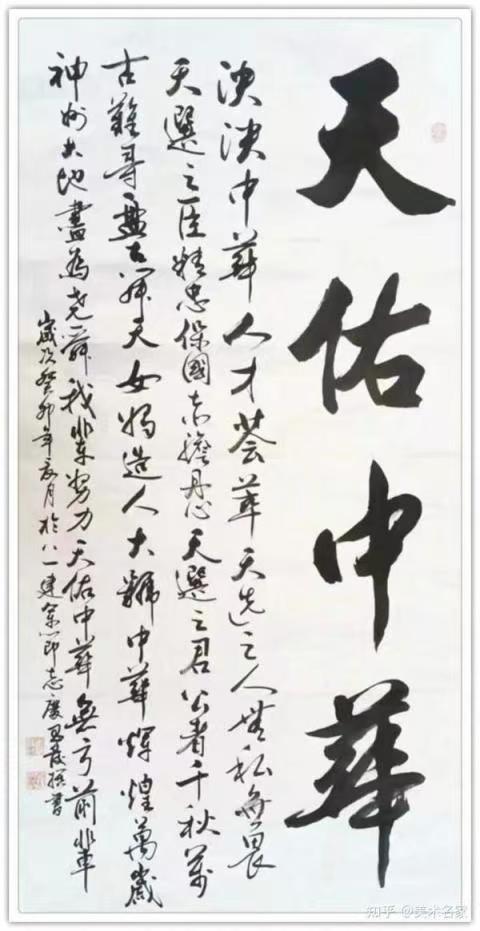 天佑中華
泱泱中華人才荟萃天选之人無私無畏
天選之臣精忠保國赤膽丹心天選之君公者千秋萬
古難尋盤古開天女媧造人大號中華輝煌萬歲
神州大地盡為堯舜我輩努力天佑中華無亏前輩
歲次癸卯年夏月於八一建軍節志慶撰書
知乎 @美术名家